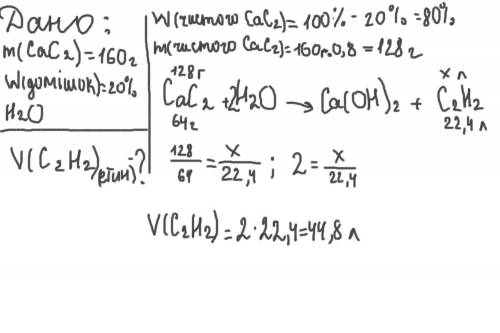 Дано:
m(CaC2)=160г
W(домішок)=20%
H2O
V(C2H2)(етин)-?
W(чистого CaC2)=100%-20%=80%
m(чистого CaC2)=160г·0,8=128г
128г x л
CaC2 + 2H2O → Ca(OH)2 + C2H2
64г 22,4л
128/64 = x/22,4 ; 2 = x/22,4
V(C2H2)=2·22,4=44,8 л